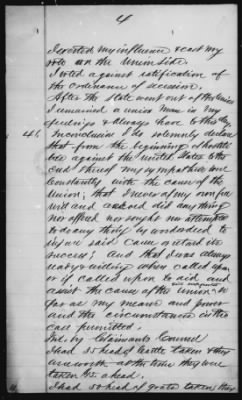 4
I exerted my influence & cast my
vote on the Union Side.
I voted against ratification of
the Ordinance of secession.
After the State went out of the Union
I remained a union man in my
feelings & always have to this day.
41. In conclusion I do solemnly declare
that from the beginning of hostili
ties against the United States to the
end thereof my sympathies were
constantly with the cause of the
Union; that I never of my own free
will and accord did any thing
nor offered nor sought nor attempted
to do any thing by word or deed to
injure said cause or retard its
success; and that I was always
ready & willing when called upon
or if called upon to aid and
assist the cause of the Union
so far as my means and power
and the circumstances in the
case permitted.
Int. by Claimants Counsel
I had 35 head of Cattle taken & they
were worth at the time they were
taken a head.
I had 50 head of goats taken they